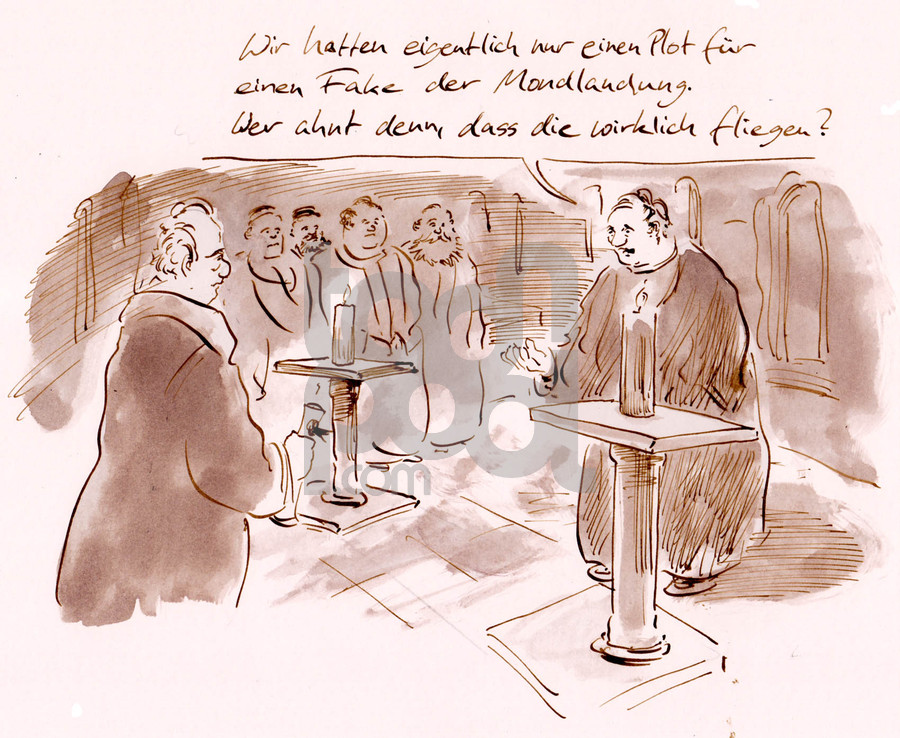 Wir hatten eigentlich nur einen Plot für
einen Fake der Mondlandung.
Wer ahnt denn, dass die wirklich fliegen?
toonpool
.com